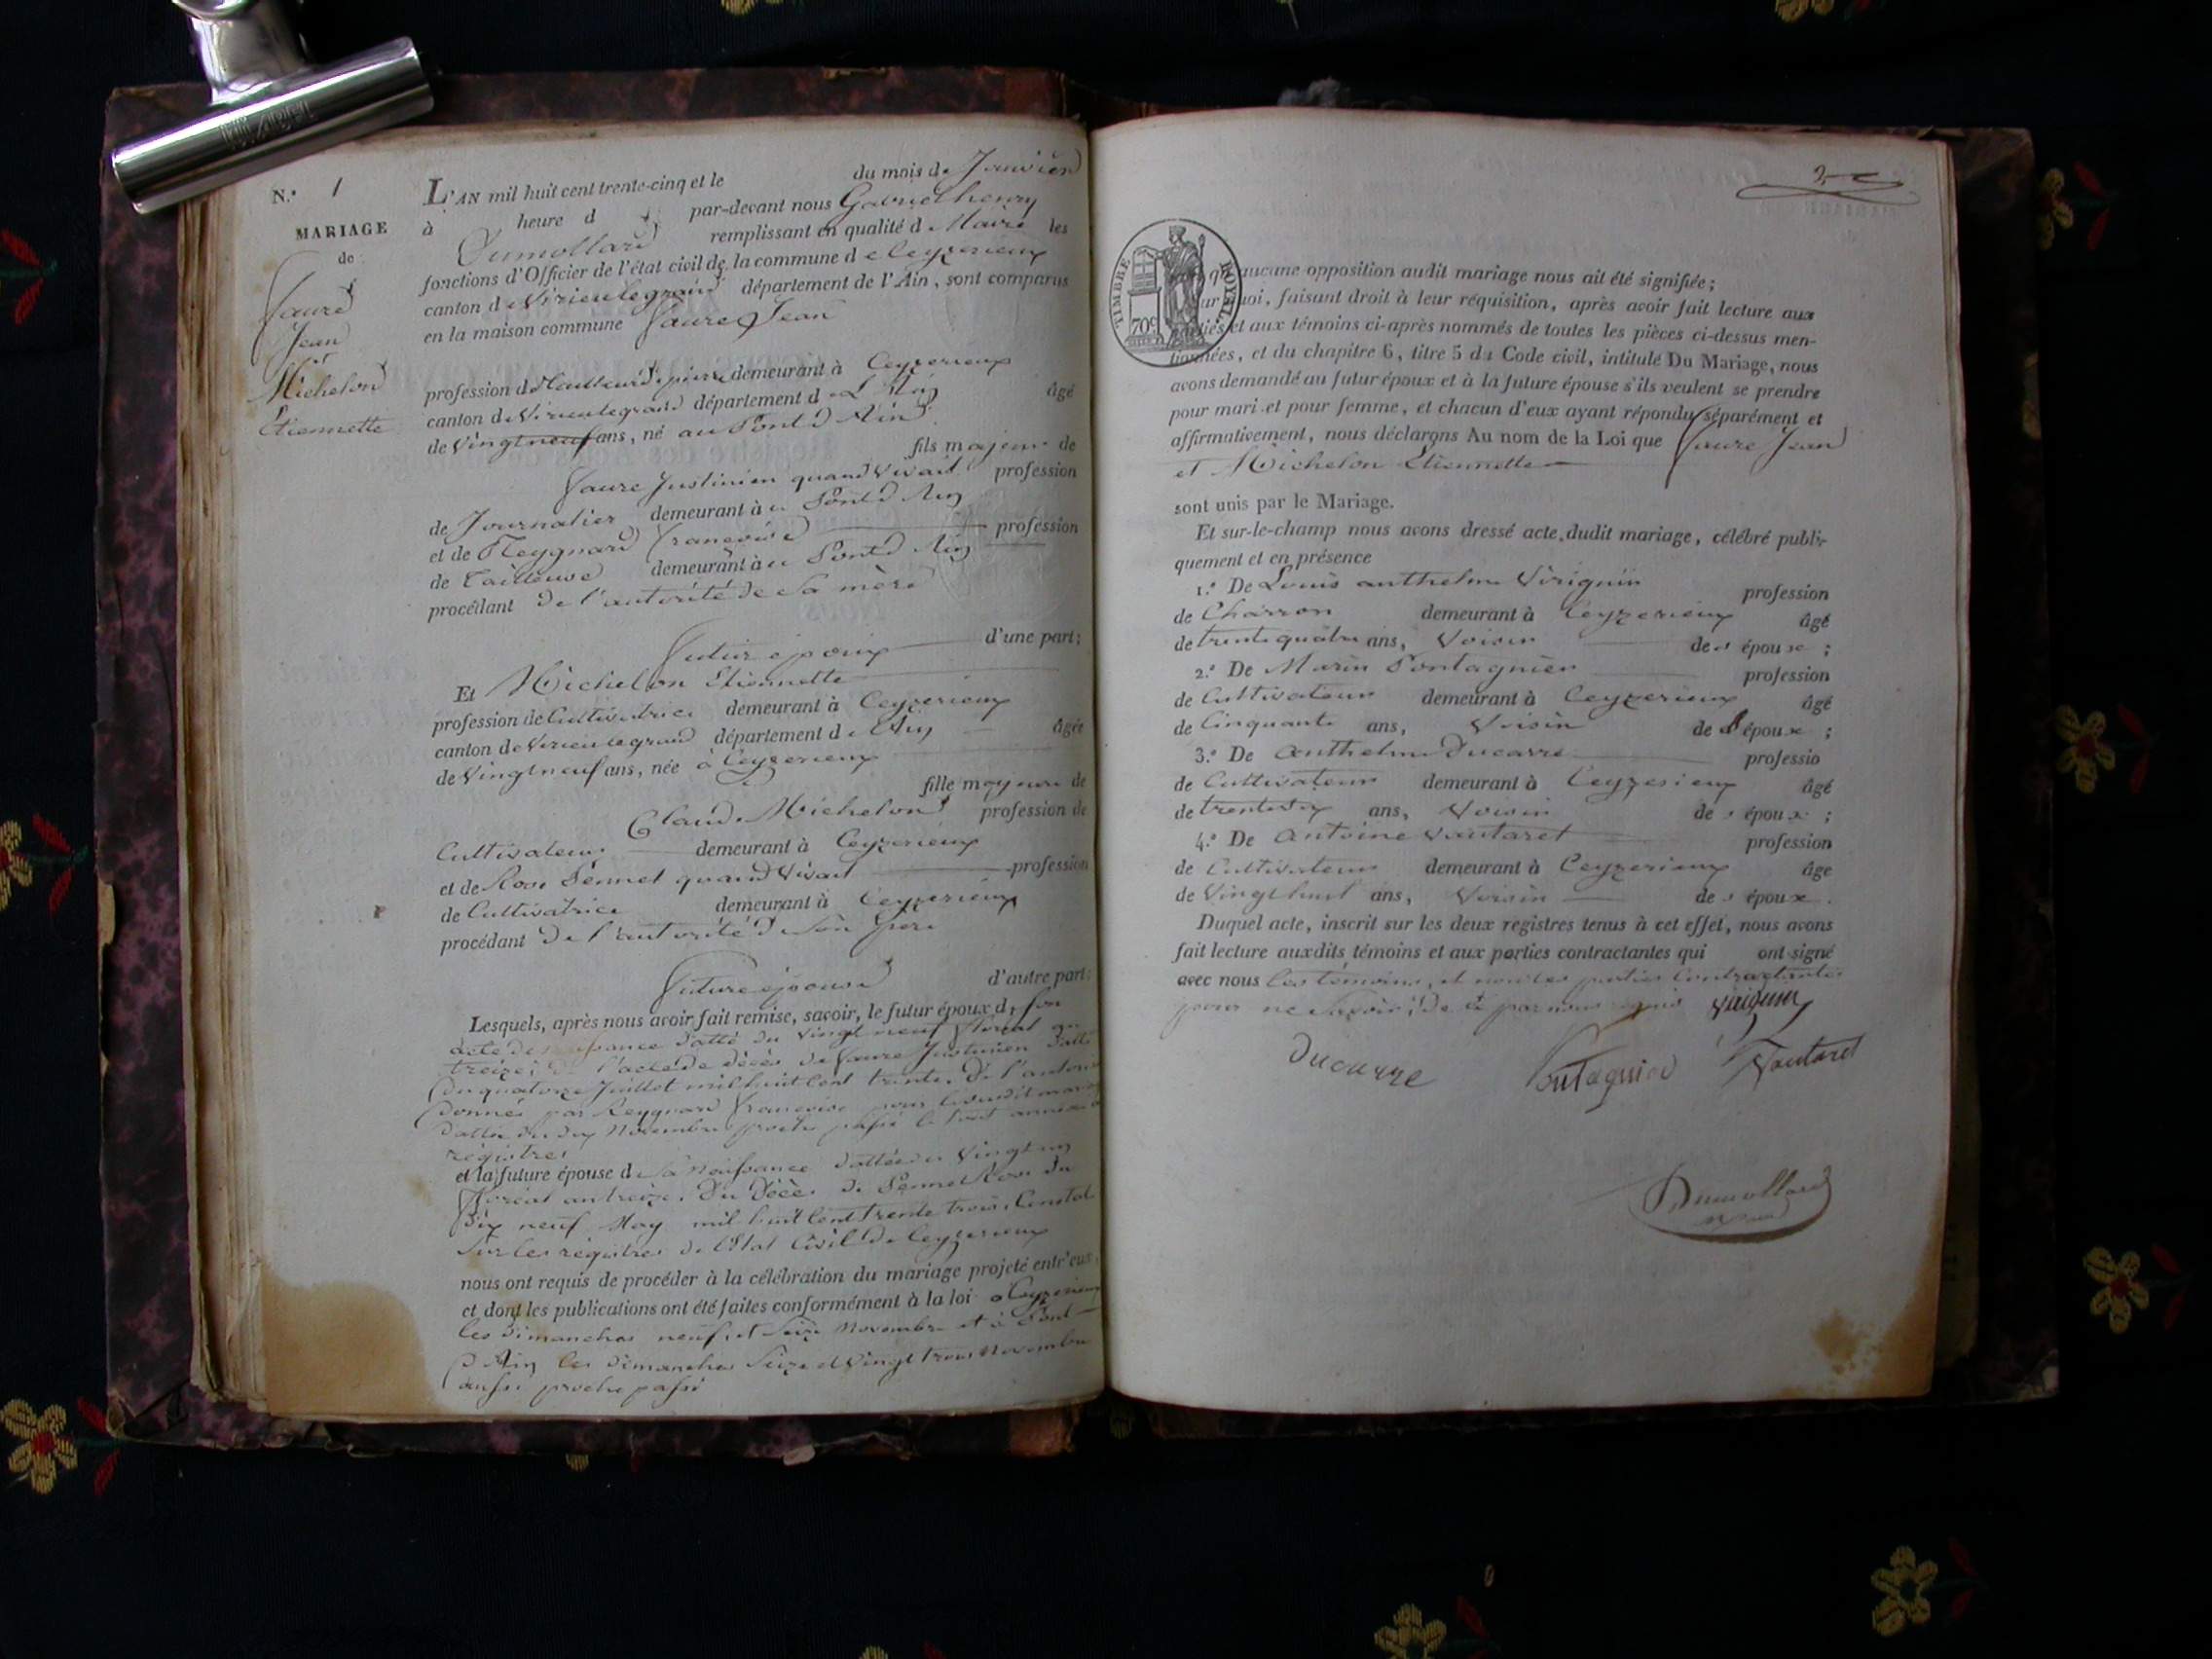 N.º 1
MARIAGE
de
Faure
Jean
et
Michelon
Etiennette
L'AN mil huit cent trente-cinq et le du mois de Janvier
à heure d par-devant nous Gabriel henry
Dumollard remplissant en qualité de Maire les
fonctions d'Officier de l'état civil de la commune de Ceyzerieux
canton de Virieulegrand département de l'Ain, sont comparus
en la maison commune Faure Jean
profession de demeurant à Ceyzerieux
canton de Virieulegrand département de L'Ain âgé
de Vingtneuf ans, né au Pont d'Ain
fils majeur de
Faure Justinien quand vivait profession
de Journalier demeurant à Pont d'Ain
et de Reygnard Françoise profession
de Tailleuse demeurant à Pont d'Ain
procédant de l'autorité de sa mère
futur époux d'une part;
Et Michelon Etiennette
profession de Cultivatrice demeurant à Ceyzerieux
canton de Virieulegrand département de l'Ain âgée
de Vingtneuf ans, née à Ceyzerieux
fille majeure de
Claude Michelon profession de
Cultivateur demeurant à Ceyzerieux
et de Rose Pennet quand vivait profession
de Cultivatrice demeurant à Ceyzerieux
procédant de l'autorité de son père
Future épouse d'autre part;
Lesquels, après nous avoir fait remise, savoir, le futur époux de son
acte de naissance datté du vingt neuf floréal an
treize; de l'acte de décès de Faure Justinien datté
du quatorze Juillet mil huit cent trente. De l'
donnée par Reygnard Françoise pour
datté du dix Novembre proche passé le tout
registres
et la future épouse de sa naissance dattée du vingt un
floréal an treize. Du Décès de Pennet Rose du
dix neuf May mil huit cent trente trois. Constaté
sur les registres de l'Etat Civil de Ceyzerieux
nous ont requis de procéder à la célébration du mariage projeté entr'eux,
et dont les publications ont été faites conformément à la loi à Ceyzerieux
les dimanches neuf, et seize Novembre et à Pont
d'Ain les dimanches seize et vingt trois Novembre
aussi proche passé
2
TIMBRE ROYAL
70c
qu'aucune opposition audit mariage nous ait été signifiée;
quoi, faisant droit à leur réquisition, après avoir fait lecture aux
parties et aux témoins ci-après nommés de toutes les pièces ci-dessus men-
tionnées, et du chapitre 6, titre 5 du Code civil, intitulé Du Mariage, nous
avons demandé au futur époux et à la future épouse s'ils veulent se prendre
pour mari et pour femme, et chacun d'eux ayant répondu séparément et
affirmativement, nous déclarons Au nom de la Loi que Faure Jean
et Michelon Etiennette
sont unis par le Mariage.
Et sur-le-champ nous avons dressé acte dudit mariage, célébré publi-
quement et en présence
1.º De Louis anthelme Virignin profession
de Charron demeurant à Ceyzerieux âgé
de trente quatre ans, Voisin des époux;
2.º De Marin Pontagnier profession
de Cultivateur demeurant à Ceyzerieux âgé
de Cinquante ans, Voisin des époux;
3.º De anthelme Ducarre professio
de Cultivateur demeurant à Ceyzerieux âgé
de trentesix ans, Voisin des époux;
4.º De antoine Vautaret profession
de Cultivateur demeurant à Ceyzerieux âge
de Vingthuit ans, Voisin des époux.
Duquel acte, inscrit sur les deux registres tenus à cet effet, nous avons
fait lecture auxdits témoins et aux parties contractantes qui ont signé
avec nous les témoins, et non les parties Contractantes
pour ne savoir, de ce par nous requis Virignin
Ducarre Pontagnier Vautaret
Dumollard